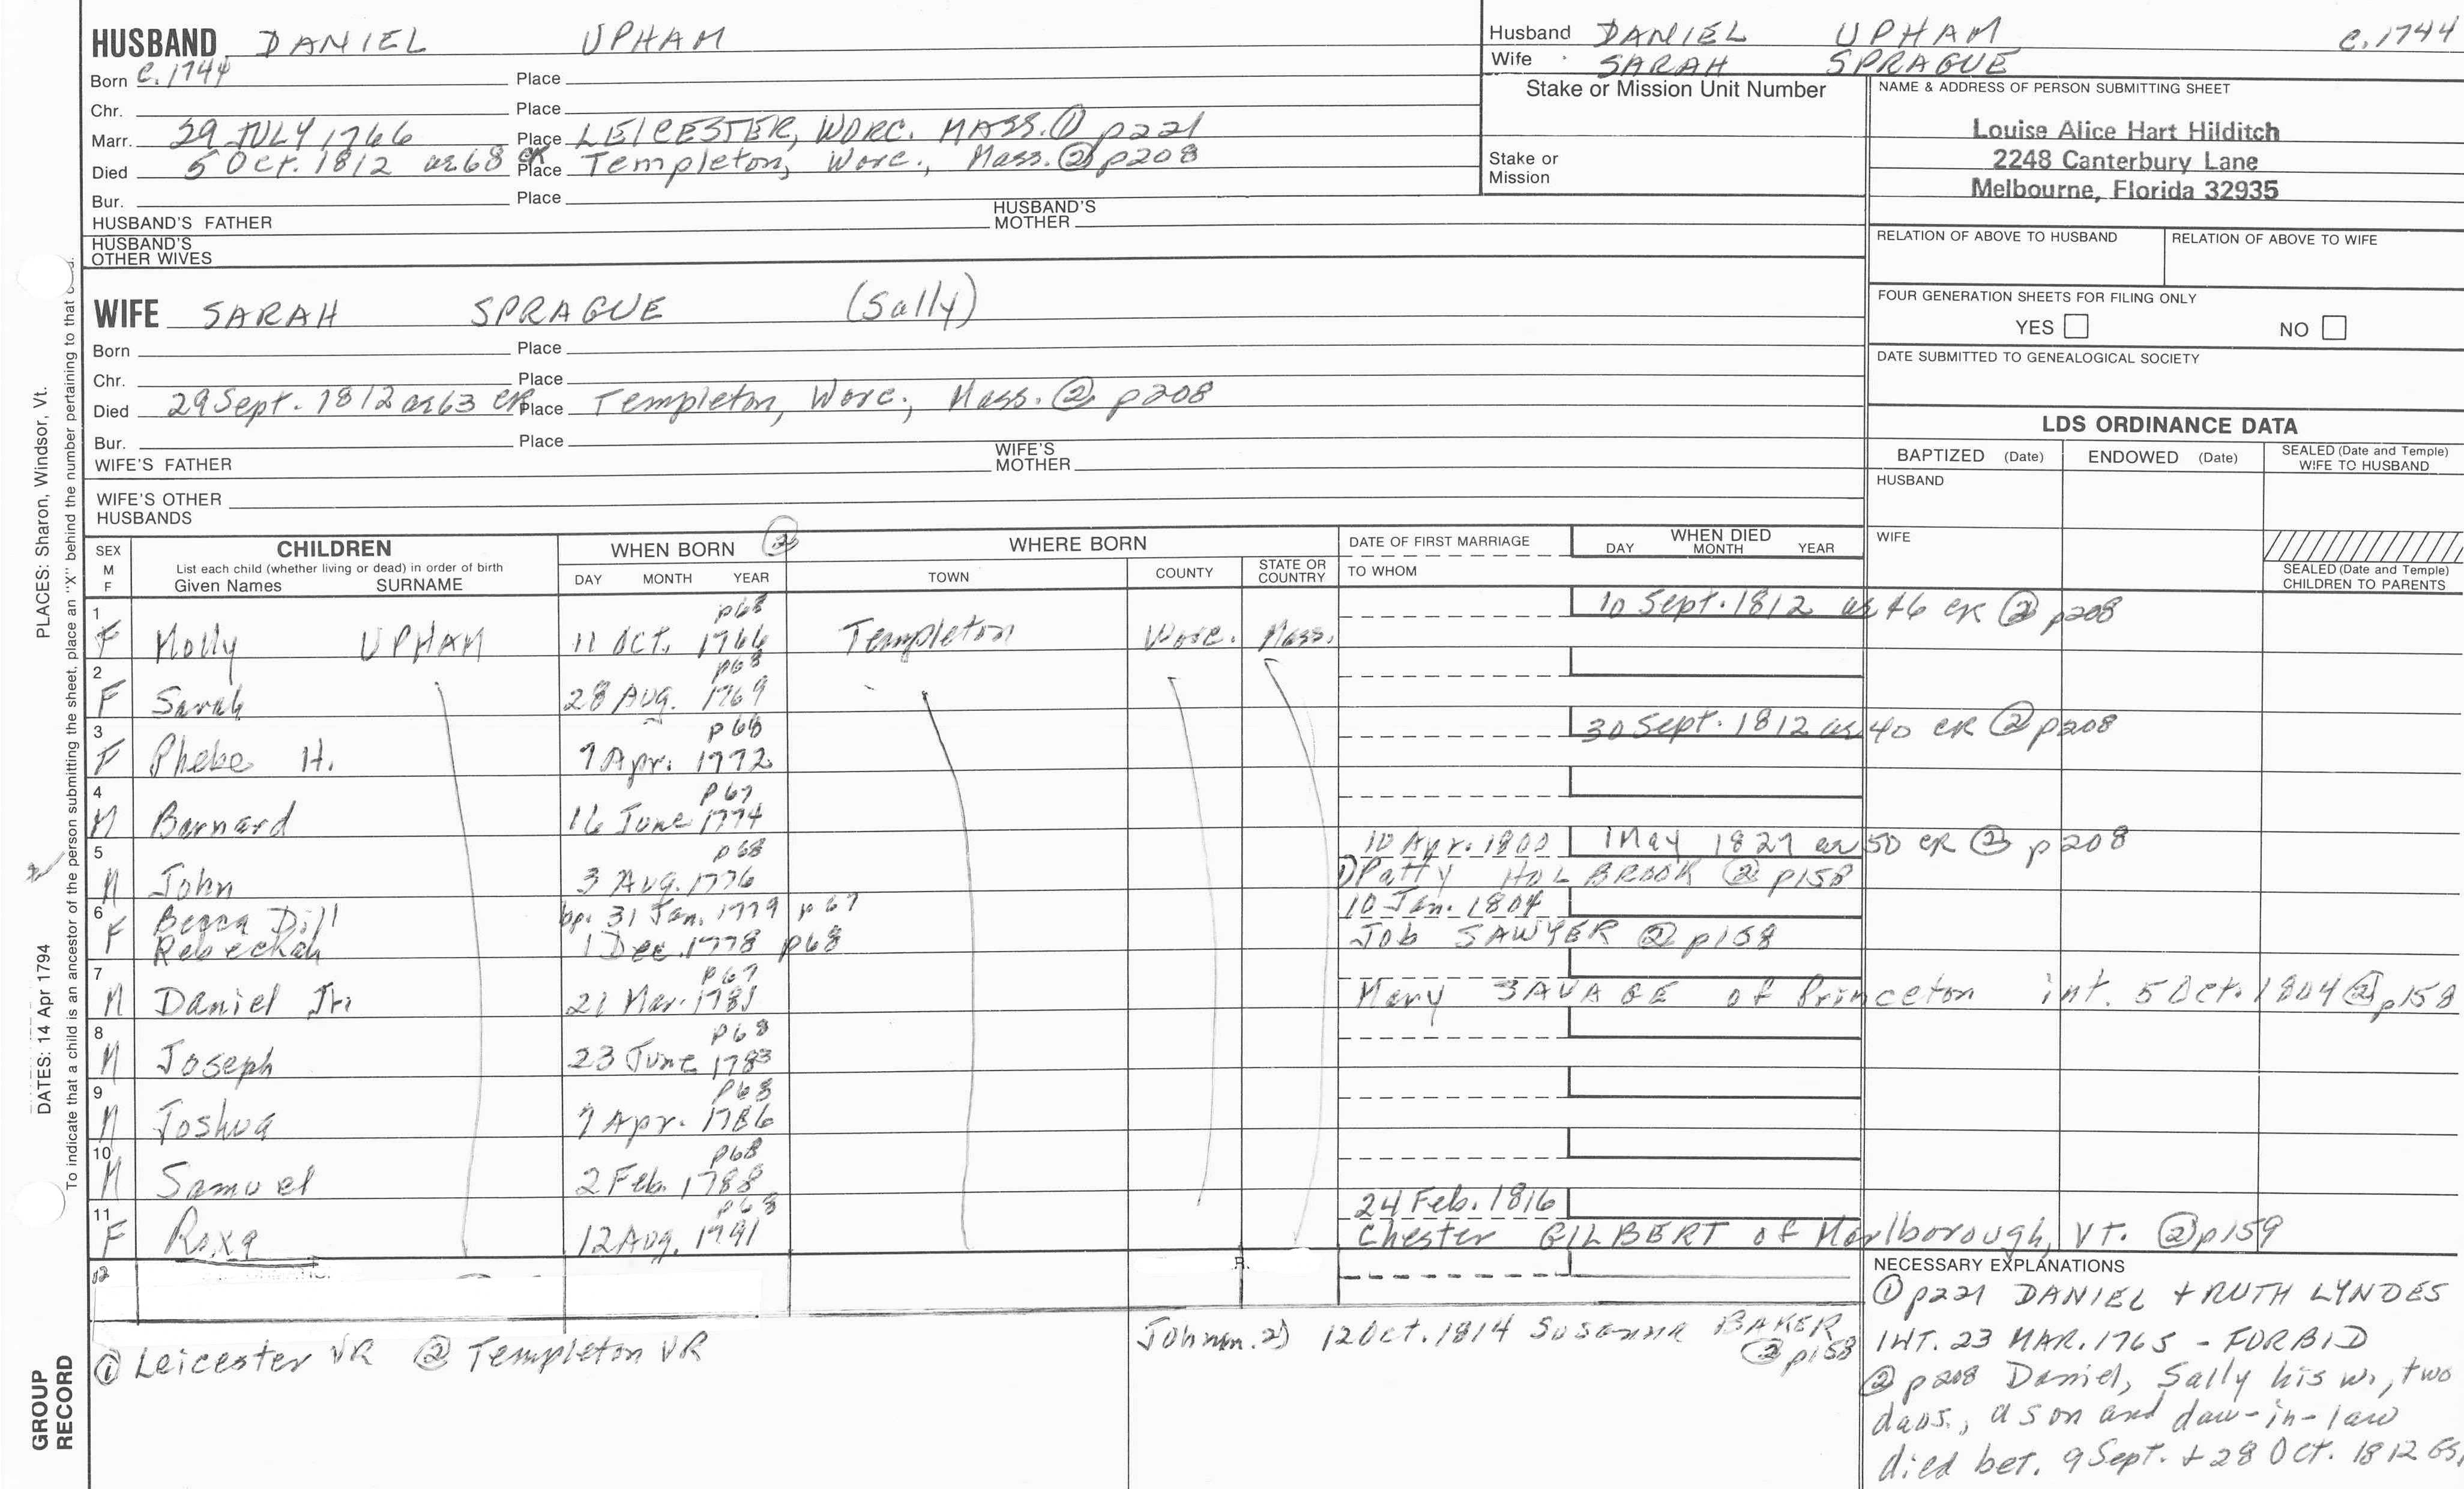 HUSBAND DANIEL UPHAM
Born c. 1744 Place
Chr. Place
Marr. 29 JULY 1766 Place LEICESTER, WORC. MASS. ① p221
Died 5 Oct. 1812 ae 68 CR Place Templeton, Worc., Mass. ② p208
Bur. Place
HUSBAND'S FATHER HUSBAND'S MOTHER
HUSBAND'S OTHER WIVES
Husband DANIEL UPHAM c. 1744
Wife SARAH SPRAGUE
Stake or Mission Unit Number
Stake or Mission
NAME & ADDRESS OF PERSON SUBMITTING SHEET
Louise Alice Hart Hilditch
2248 Canterbury Lane
Melbourne, Florida 32935
RELATION OF ABOVE TO HUSBAND RELATION OF ABOVE TO WIFE
FOUR GENERATION SHEETS FOR FILING ONLY
YES NO
DATE SUBMITTED TO GENEALOGICAL SOCIETY
WIFE SARAH SPRAGUE (Sally)
Born Place
Chr. Place
Died 29 Sept. 1812 ae 63 CR Place Templeton, Worc., Mass. ② p208
Bur. Place
WIFE'S FATHER WIFE'S MOTHER
WIFE'S OTHER HUSBANDS
LDS ORDINANCE DATA
BAPTIZED (Date) ENDOWED (Date) SEALED (Date and Temple) WIFE TO HUSBAND
HUSBAND
WIFE
SEALED (Date and Temple) CHILDREN TO PARENTS
SEX M F
CHILDREN
List each child (whether living or dead) in order of birth
Given Names SURNAME
WHEN BORN ②
DAY MONTH YEAR
WHERE BORN
TOWN COUNTY STATE OR COUNTRY
DATE OF FIRST MARRIAGE
TO WHOM
WHEN DIED
DAY MONTH YEAR
1 p68 10 Sept. 1812 ae 46 CR ② p208
F Molly UPHAM 11 OCT. 1766 Templeton Worc. Mass.
2 p68
F Sarah 28 Aug. 1769
3 p68 30 Sept. 1812 ae 40 CR ② p208
F Phebe H. 7 Apr. 1772
4 p67
M Barnard 16 June 1774
5 p68 10 Apr. 1800 1 May 1827 ae 50 CR ② p208
M John 3 Aug. 1776 1) Patty HOLBROOK ② p158
6 Becca Dill bp. 31 Jan. 1779 p67 10 Jan. 1804
F Rebeckah 1 Dec. 1778 p68 Job SAWYER ② p158
7 p67
M Daniel Jr. 21 Mar. 1781 Mary SAVAGE of Princeton int. 5 Oct. 1804 ② p158
8 p68
M Joseph 23 June 1783
9 p68
M Joshua 7 Apr. 1786
10 p68
M Samuel 2 Feb. 1788
11 p68 24 Feb. 1816
F Roxa 12 Aug. 1791 Chester GILBERT of Marlborough, VT. ② p159
12
John m. 2) 12 Oct. 1814 Susanna BAKER ② p158
① Leicester VR ② Templeton VR
NECESSARY EXPLANATIONS
① p221 DANIEL + RUTH LYNDES
INT. 23 MAR. 1765 - FORBID
② p208 Daniel, Sally his w., two
daus., a son and dau-in-law
died bet. 9 Sept. + 28 Oct. 1812
PLACES: Sharon, Windsor, Vt.
DATES: 14 Apr 1794
To indicate that a child is an ancestor of the person submitting the sheet, place an "X" behind the number pertaining to that
GROUP RECORD